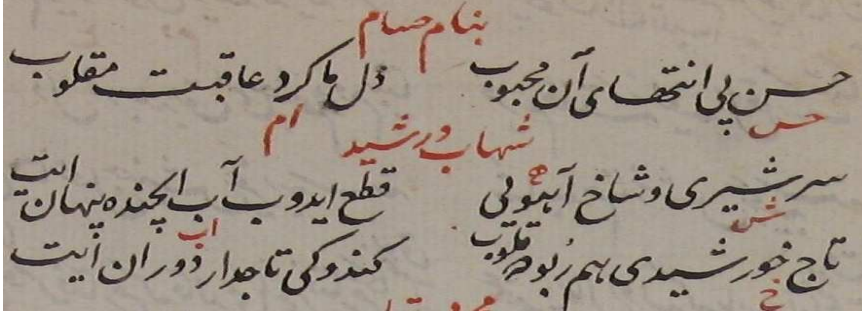 بنام حسام
حسن بی انتهای آن محبوب دل ما کرد عاقبت مقلوب
حس ام
شهاب و رشید
سر شیری و شاخ آهویی قطع ایدوب آب ایچنده پنهان ایت
ش ه اب
تاج خورشیدی هم ربوده قلوب کندوکی تاجدار دوران ایت
خ